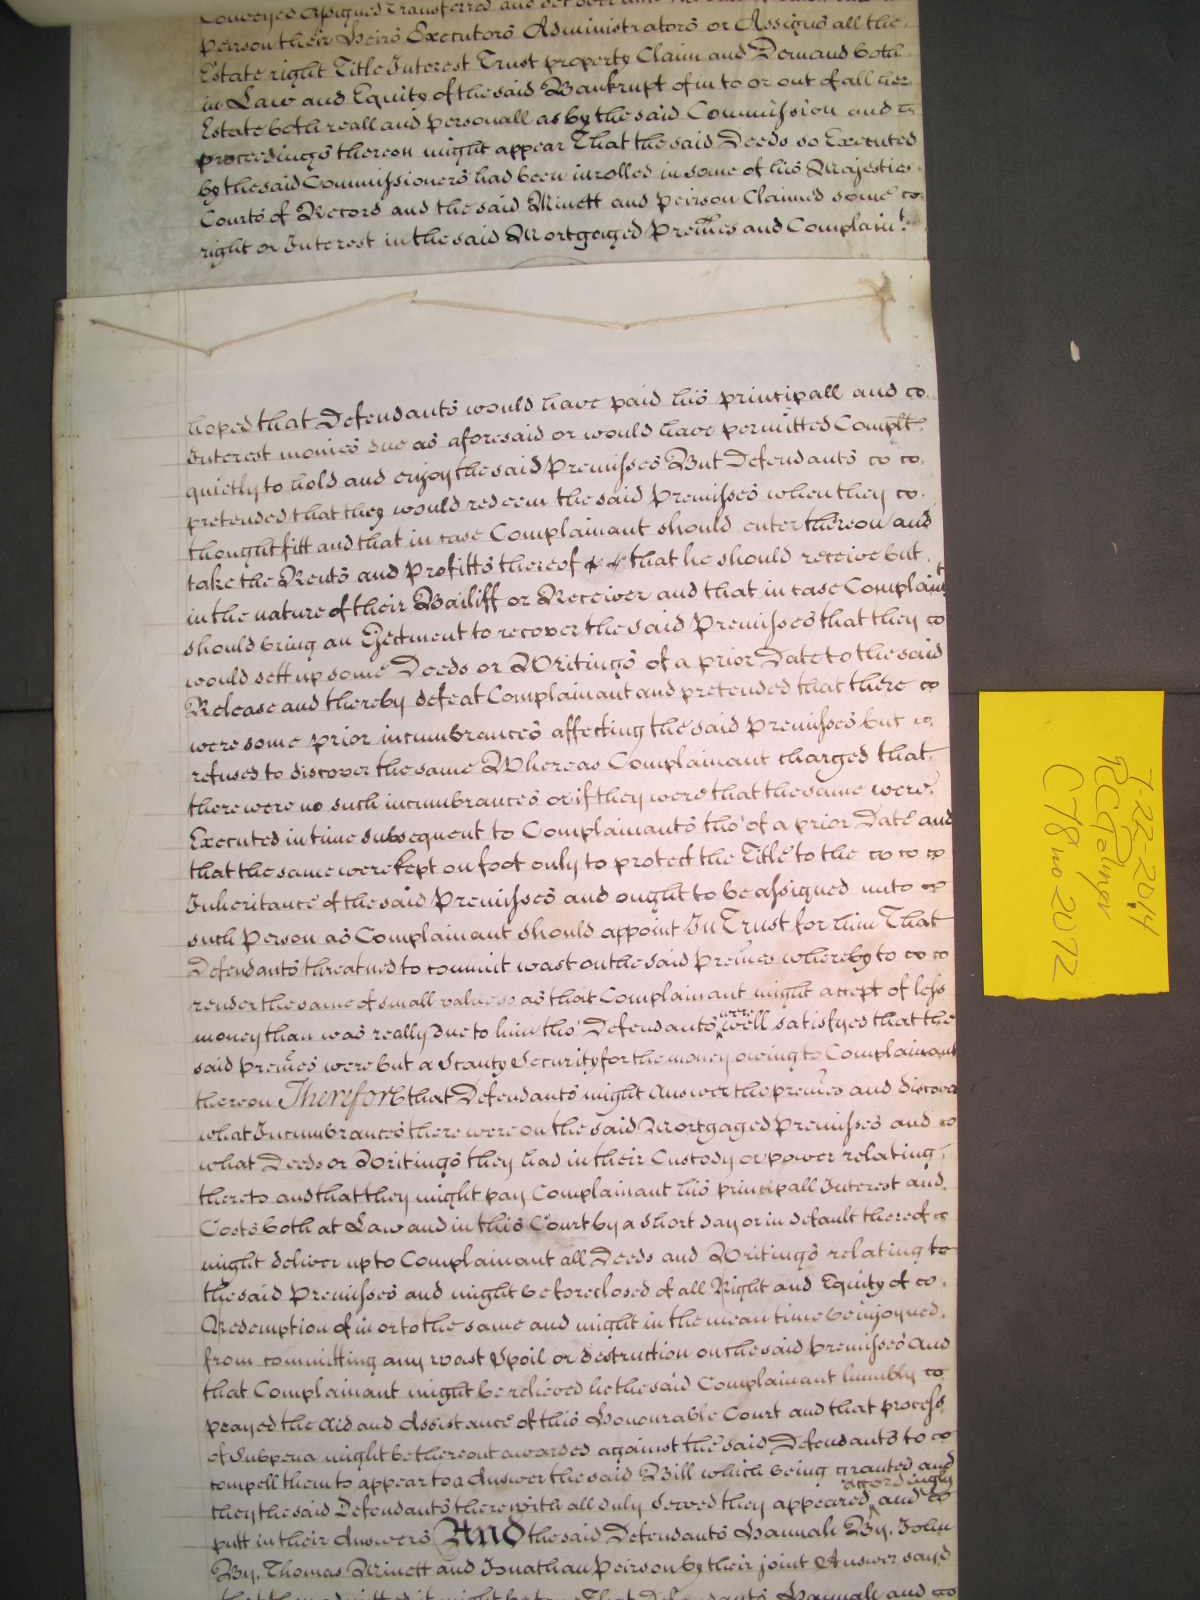 Conveyed Assigned Transferred and set over unto the said
peirson their Heirs Executors Administrators or Assigns all the
Estate right Title Interest Trust property Claim and Demand both
in Law and Equity of the said Bankrupt of in to or out of all her
Estate both reall and personall as by the said Commission and
proceedings thereon might appear That the said Deeds so Executed
by the said Commissioners had been inrolled in some of his Majesties
Courts of Record and the said Minett and peirson Claimed some
right or Interest in the said Mortgaged Premes and Complaint.
hoped that Defendants would have paid his principall and
Interest monies due as aforesaid or would have permitted Complt.
quietly to hold and enjoy the said Premisses But Defendants
pretended that they would redeem the said Premisses when they
thought fitt and that in case Complainant should enter thereon and
take the Rents and Profitts thereof that he should receive but
in the nature of their Bailiff or Receiver and that in case Complaint
should bring an Ejectment to recover the said Premisses that they
would sett up some Deeds or Writings of a prior Date to the said
Release and thereby defeat Complainant and pretended that there
were some prior incumbrances affecting the said Premisses but
refused to discover the same Whereas Complainant charged that
there were no such incumbrances or if they were that the same were
Executed in time subsequent to Complainants tho' of a prior Date and
that the same were kept on foot only to protect the Title to the
Inheritance of the said Premisses and ought to be assigned unto
such Person as Complainant should appoint In Trust for him That
Defendants threatned to commit wast on the said Premes whereby to
render the same of small value so as that Complainant might accept of less
money than was really due to him tho' Defendants were well satisfyed that the
said Premes were but a Scanty Security for the money owing to Complainant
thereon Therefore that Defendants might Answer the premes and discover
what Incumbrances there were on the said Mortgaged Premisses and
what Deeds or Writings they had in their Custody or power relating
thereto and that they might pay Complainant his principall Interest and
Costs both at Law and in this Court by a short day or in default thereof
might deliver up to Complainant all Deeds and Writings relating to
the said Premisses and might be foreclosed of all Right and Equity of
Redemption of in or to the same and might in the mean time be injoyned
from committing any wast Spoil or destruction on the said Premisses And
that Complainant might be relieved he the said Complainant humbly
prayed the Aid and Assistance of this Honourable Court and that process
of Subpena might be thereout awarded against the said Defendants to
compell them to appear to a Answer the said Bill which being granted and
they the said Defendants therewith all duly Served they appeared accordingly and
putt in their Answers And the said Defendants Hannah By, John
By, Thomas Minett and Jonathan Peirson by their joint Answer sayd
that they admitted it might be true That Defendants Hannah and
7-22-2014
RCPalmer
C78 no 2072